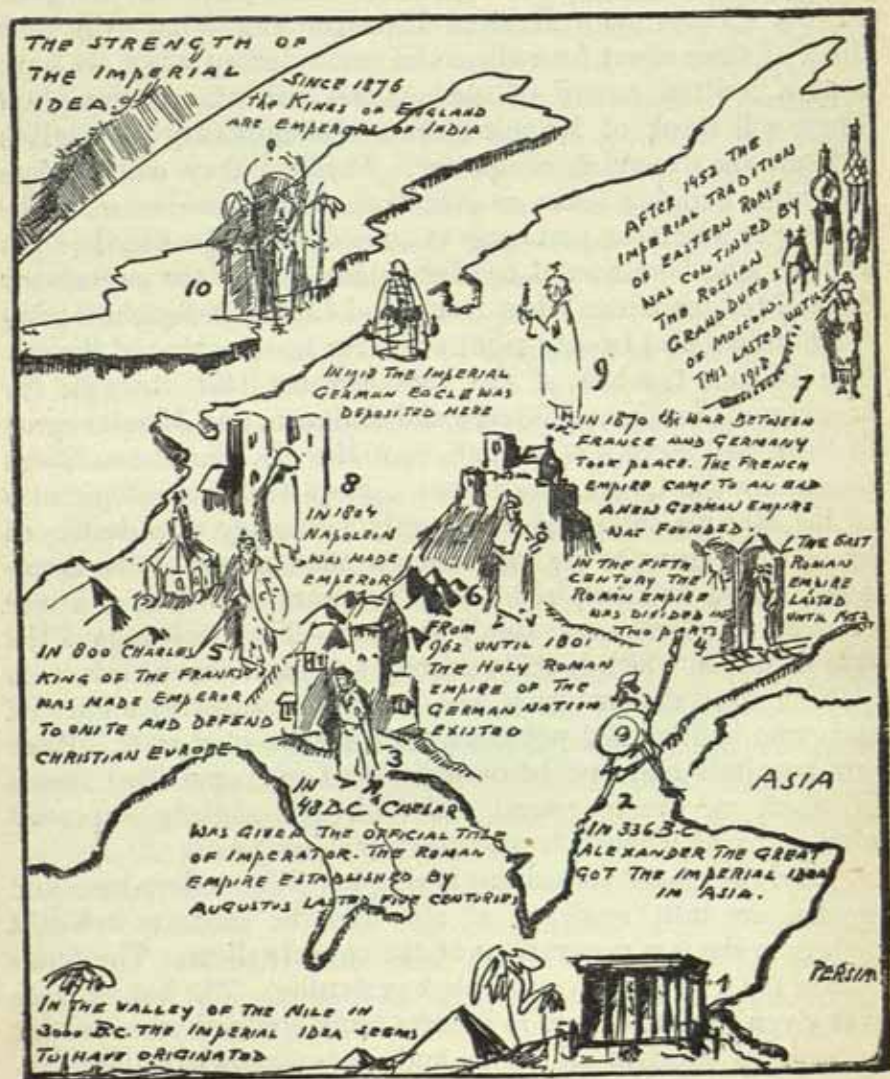 THE STRENGTH OF
THE IMPERIAL
IDEA.
SINCE 1876
the KINGS OF ENGLAND
ARE EMPERORS OF INDIA
10
AFTER 1453 THE
IMPERIAL TRADITION
OF EASTERN ROME
WAS CONTINUED BY
THE RUSSIAN
GRANDDUKES
OF MOSCOW.
THIS LASTED UNTIL
1918
7
IN 1918 THE IMPERIAL
GERMAN EAGLE WAS
DEPOSITED HERE
9
IN 1870 the WAR BETWEEN
FRANCE AND GERMANY
TOOK PLACE. THE FRENCH
EMPIRE CAME TO AN END
A NEW GERMAN EMPIRE
WAS FOUNDED.
8
IN 1804
NAPOLEON
WAS MADE
EMPEROR
IN THE FIFTH
CENTURY THE
ROMAN EMPIRE
WAS DIVIDED IN
TWO PARTS
4
THE EAST
ROMAN
EMPIRE
LASTED
UNTIL 1453
5
IN 800 CHARLES
KING OF THE FRANKS
WAS MADE EMPEROR
TO UNITE AND DEFEND
CHRISTIAN EUROPE
6
FROM
962 UNTIL 1801
THE HOLY ROMAN
EMPIRE OF THE
GERMAN NATION
EXISTED
3
IN
48 B.C. CAESAR
WAS GIVEN THE OFFICIAL TITLE
OF IMPERATOR. THE ROMAN
EMPIRE ESTABLISHED BY
AUGUSTUS LASTED FIVE CENTURIES
ASIA
2
IN 336 B.C
ALEXANDER THE GREAT
GOT THE IMPERIAL IDEA
IN ASIA.
PERSIA
1
IN THE VALLEY OF THE NILE IN
3000 B.C. THE IMPERIAL IDEA SEEMS
TO HAVE ORIGINATED